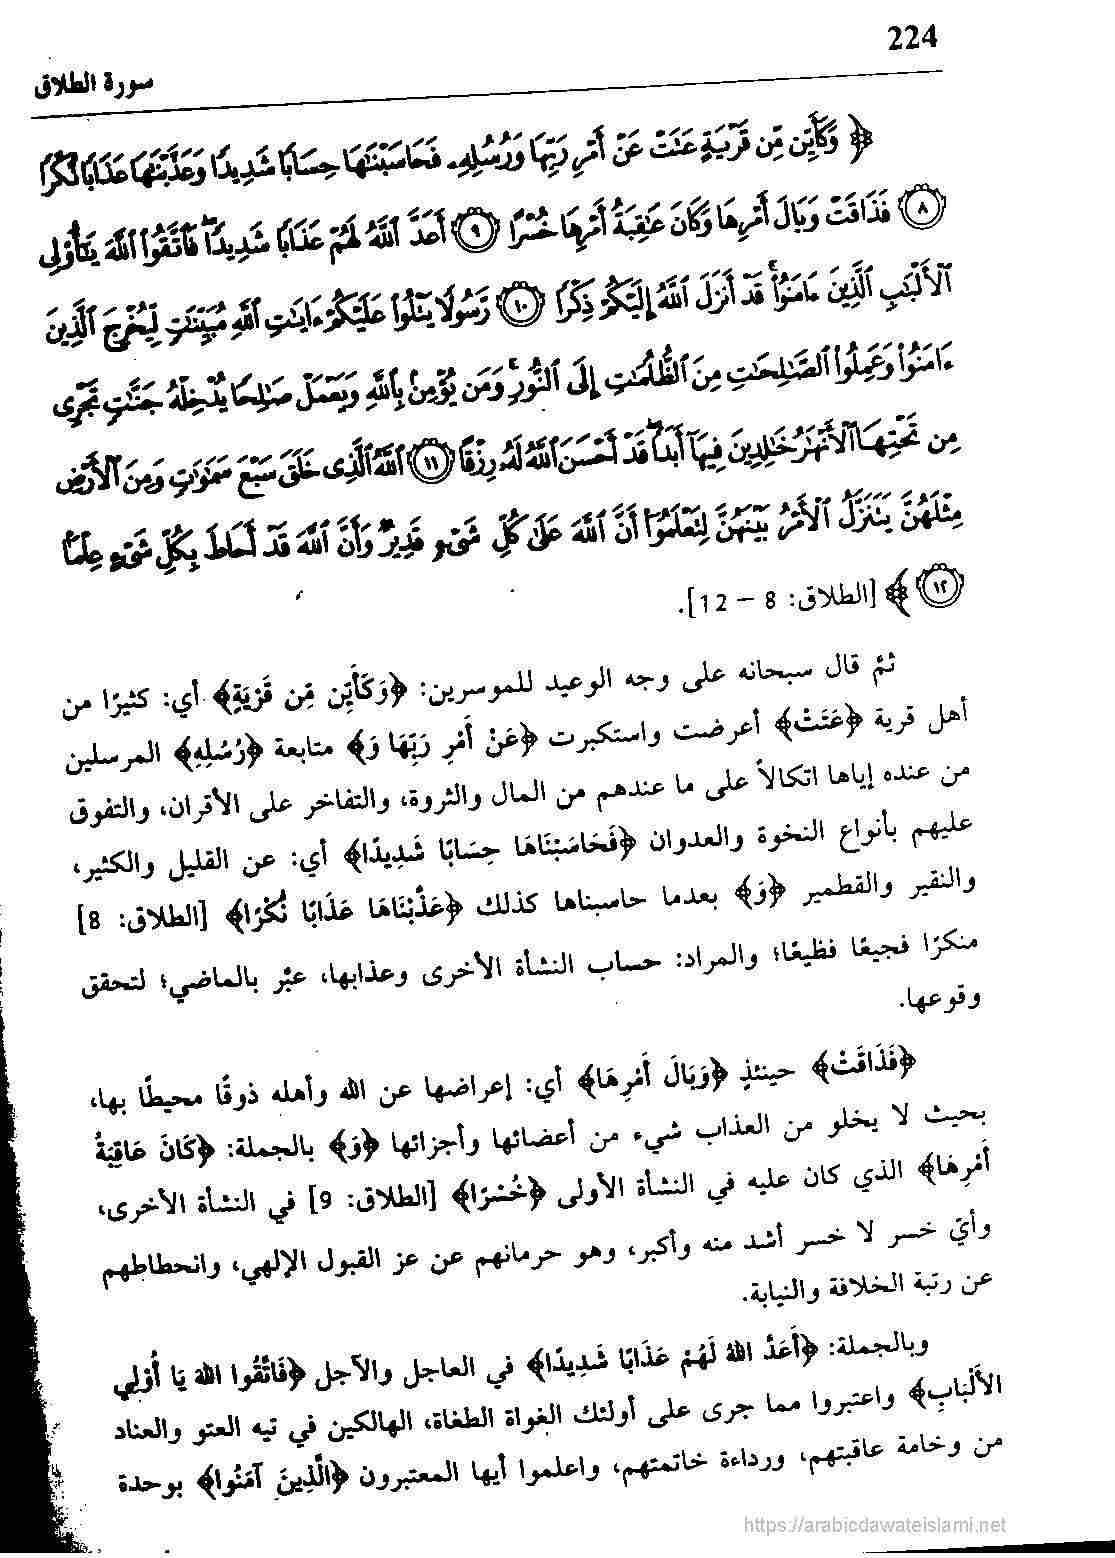 224
سورة الطلاق
﴿ وَكَأَيِّن مِّن قَرْيَةٍ عَتَتْ عَنْ أَمْرِ رَبِّهَا وَرُسُلِهِۦ فَحَاسَبْنَٰهَا حِسَابًا شَدِيدًا وَعَذَّبْنَٰهَا عَذَابًا نُّكْرًا
﴿٨﴾ فَذَاقَتْ وَبَالَ أَمْرِهَا وَكَانَ عَٰقِبَةُ أَمْرِهَا خُسْرًا ﴿٩﴾ أَعَدَّ ٱللَّهُ لَهُمْ عَذَابًا شَدِيدًا ۖ فَٱتَّقُوا۟ ٱللَّهَ يَٰٓأُو۟لِى
ٱلْأَلْبَٰبِ ٱلَّذِينَ ءَامَنُوا۟ ۚ قَدْ أَنزَلَ ٱللَّهُ إِلَيْكُمْ ذِكْرًا ﴿١٠﴾ رَّسُولًا يَتْلُوا۟ عَلَيْكُمْ ءَايَٰتِ ٱللَّهِ مُبَيِّنَٰتٍ لِّيُخْرِجَ ٱلَّذِينَ
ءَامَنُوا۟ وَعَمِلُوا۟ ٱلصَّٰلِحَٰتِ مِنَ ٱلظُّلُمَٰتِ إِلَى ٱلنُّورِ ۚ وَمَن يُؤْمِنۢ بِٱللَّهِ وَيَعْمَلْ صَٰلِحًا يُدْخِلْهُ جَنَّٰتٍ تَجْرِى
مِن تَحْتِهَا ٱلْأَنْهَٰرُ خَٰلِدِينَ فِيهَآ أَبَدًا ۖ قَدْ أَحْسَنَ ٱللَّهُ لَهُۥ رِزْقًا ﴿١١﴾ ٱللَّهُ ٱلَّذِى خَلَقَ سَبْعَ سَمَٰوَٰتٍ وَمِنَ ٱلْأَرْضِ
مِثْلَهُنَّ يَتَنَزَّلُ ٱلْأَمْرُ بَيْنَهُنَّ لِتَعْلَمُوٓا۟ أَنَّ ٱللَّهَ عَلَىٰ كُلِّ شَىْءٍ قَدِيرٌ وَأَنَّ ٱللَّهَ قَدْ أَحَاطَ بِكُلِّ شَىْءٍ عِلْمًۢا
﴿١٢﴾ ﴾ [الطلاق: 8 – 12].
ثمَّ قال سبحانه على وجه الوعيد للموسرين: ﴿وَكَأَيِّن مِّن قَرْيَةٍ﴾ أي: كثيرًا من
أهل قرية ﴿عَتَتْ﴾ أعرضت واستكبرت ﴿عَنْ أَمْرِ رَبِّهَا وَ﴾ متابعة ﴿رُسُلِهِ﴾ المرسلين
من عنده إياها اتكالاً على ما عندهم من المال والثروة، والتفاخر على الأقران، والتفوق
عليهم بأنواع النخوة والعدوان ﴿فَحَاسَبْنَاهَا حِسَابًا شَدِيدًا﴾ أي: عن القليل والكثير،
والنقير والقطمير ﴿وَ﴾ بعدما حاسبناها كذلك ﴿عَذَّبْنَاهَا عَذَابًا نُّكْرًا﴾ [الطلاق: 8]
منكرًا فجيعًا فظيعًا؛ والمراد: حساب النشأة الأخرى وعذابها، عبَّر بالماضي؛ لتحقق
وقوعها.
﴿فَذَاقَتْ﴾ حينئذٍ ﴿وَبَالَ أَمْرِهَا﴾ أي: إعراضها عن الله وأهله ذوقًا محيطًا بها،
بحيث لا يخلو من العذاب شيء من أعضائها وأجزائها ﴿وَ﴾ بالجملة: ﴿كَانَ عَاقِبَةُ
أَمْرِهَا﴾ الذي كان عليه في النشأة الأولى ﴿خُسْرًا﴾ [الطلاق: 9] في النشأة الأخرى،
وأيّ خسر لا خسر أشد منه وأكبر، وهو حرمانهم عن عز القبول الإلهي، وانحطاطهم
عن رتبة الخلافة والنيابة.
وبالجملة: ﴿أَعَدَّ اللهُ لَهُمْ عَذَابًا شَدِيدًا﴾ في العاجل والآجل ﴿فَاتَّقُوا اللهَ يَا أُوْلِي
الأَلْبَابِ﴾ واعتبروا مما جرى على أولئك الغواة الطغاة، الهالكين في تيه العتو والعناد
من وخامة عاقبتهم، ورداءة خاتمتهم، واعلموا أيها المعتبرون ﴿الَّذِينَ آمَنُوا﴾ بوحدة
https://arabicdawateislami.net